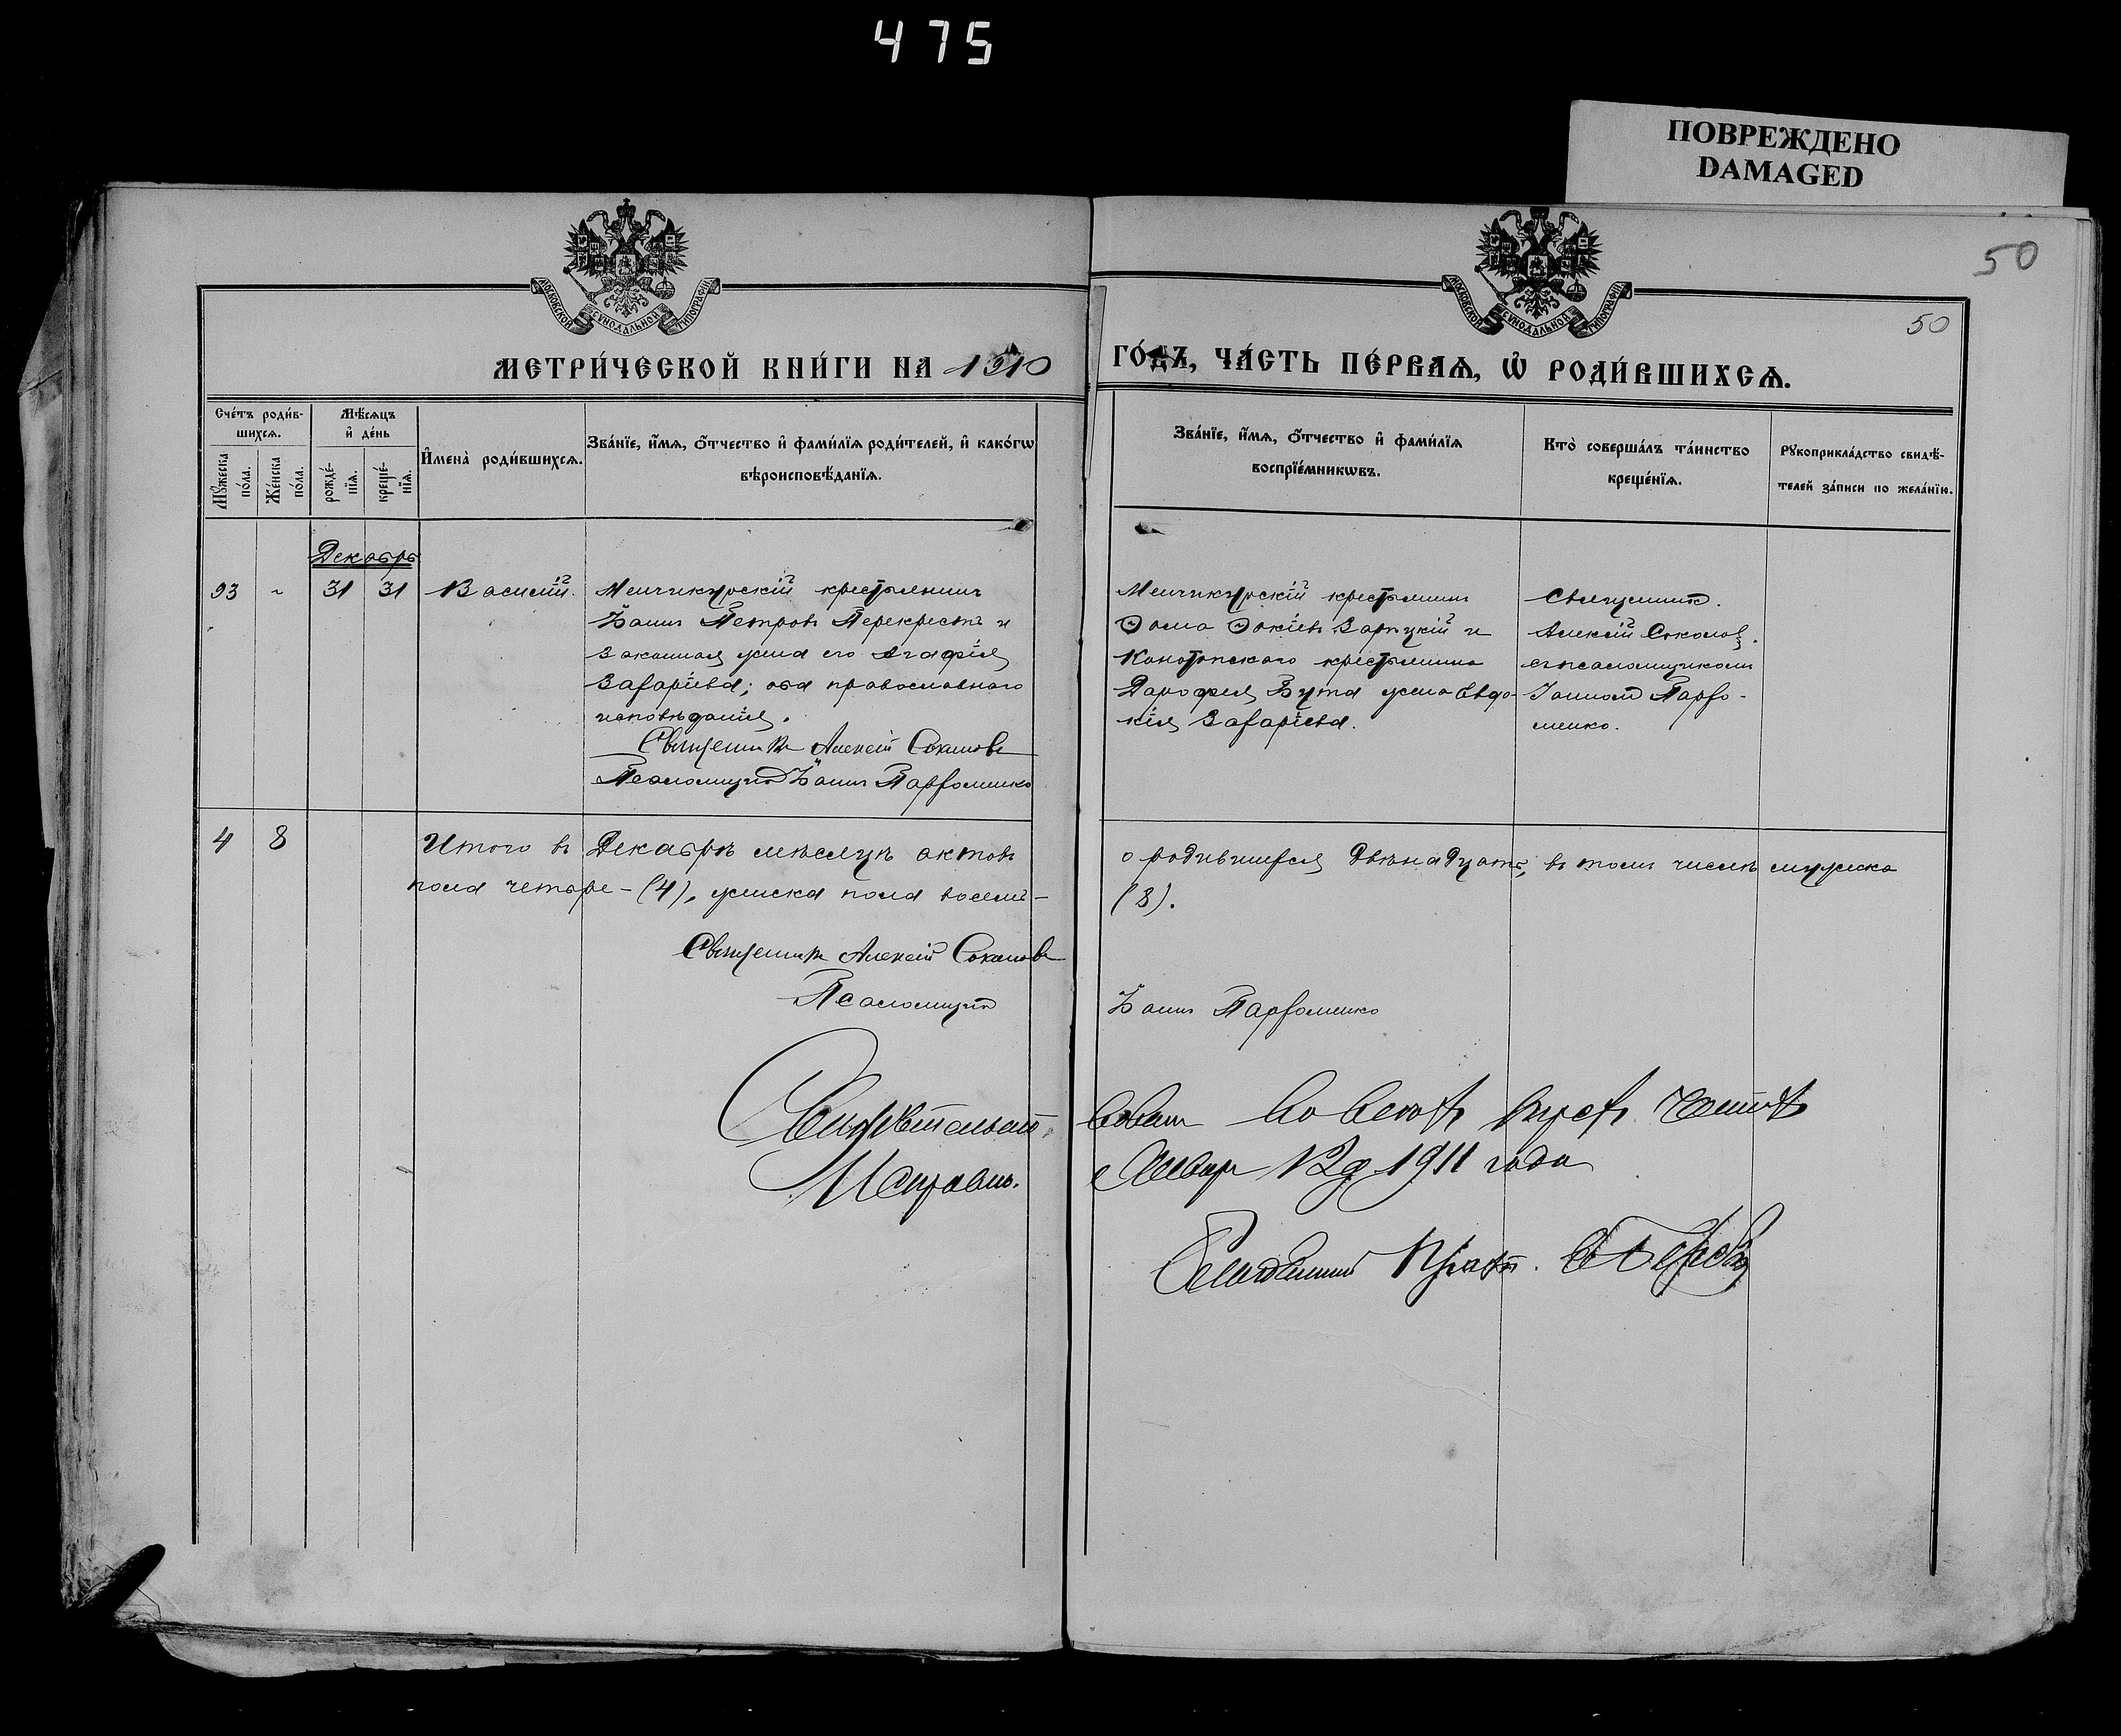 475
ПОВРЕЖДЕНО
DAMAGED
50
50
МОСКОВСКОЙ СѴНОДАЛЬНОЙ ТИПОГРАФІИ
МОСКОВСКОЙ СѴНОДАЛЬНОЙ ТИПОГРАФІИ
МЕТРИ́ЧЕСКОЙ КНИ́ГИ НА 1910
ГО́ДЪ, ЧА́СТЬ ПЕ́РВАѦ, Ѡ҆ РОДИ́ВШИХСѦ.
Сче́тъ роди́в-
шихсѧ.
Мꙋ́жеска по́ла.
Же́нска по́ла.
Мѣ́сѧцъ
и҆ де́нь
рожде́-
нїѧ.
креще́-
нїѧ.
И҆мена̀ роди́вшихсѧ.
Зва́нїе, и҆́мѧ, ѻ҆́тчество и҆ фами́лїѧ роди́телей, и҆ како́гѡ
вѣроисповѣ́данїѧ.
Зва́нїе, и҆́мѧ, ѻ҆́тчество и҆ фами́лїѧ
воспрїе́мникѡвъ.
Кто̀ соверша́лъ та́инство
креще́нїѧ.
Рꙋкоприкла́дство свидѣ́-
телей за́писи по жела́нїю.
Декабрь
93 - 31 31 Василій.
Менчикурскій крестьянинъ
Іоаннъ Петровъ Перекрестъ и
законная жена его Агафія
Захаріева; оба православнаго
исповѣданія.
Священникъ Алексій Соколовъ
Псаломщикъ Іоаннъ Пархоменко
Менчикурскій крестьянинъ
Ѳома Ѳокіевъ Зарицкій и
Конотопскаго крестьянина
Дарофея Бута жена Евдо-
кія Захаріева.
Священникъ
Алексій Соколовъ.
съ псаломщикомъ
Іоанномъ Пархо-
менко.
4 8 Итого въ Декабрѣ мѣсяцѣ актовъ
о родившихся двѣнадцать, въ томъ числѣ мужска
пола четыре - (4), женска пола восемь -
(8).
Священникъ Алексій Соколовъ
Псаломщикъ
Іоаннъ Пархоменко
Свидѣтельст-
вовалъ
Исправно.
Январ 12 д. 1911 года